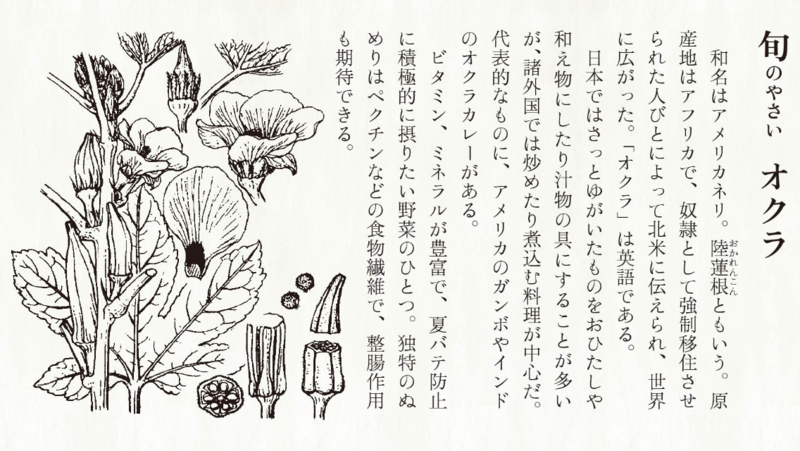 旬のやさい オクラ
和名はアメリカネリ。陸蓮根ともいう。原
おかれんこん
産地はアフリカで、奴隷として強制移住させ
られた人びとによって北米に伝えられ、世界
に広がった。「オクラ」は英語である。
日本ではさっとゆがいたものをおひたしや
和え物にしたり汁物の具にすることが多い
が、諸外国では炒めたり煮込む料理が中心だ。
代表的なものに、アメリカのガンボやインド
のオクラカレーがある。
ビタミン、ミネラルが豊富で、夏バテ防止
に積極的に摂りたい野菜のひとつ。独特のぬ
めりはペクチンなどの食物繊維で、整腸作用
も期待できる。